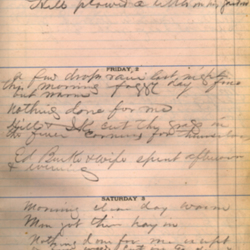 Will plowed a little on my garden
FRIDAY, 2
A few drops rain last night
this morning foggy day fine
but warm
nothing done for me
Will & Ike cut the grass in
the corners for
Ed Burke & wife spent afternoon
& evening
SATURDAY 3
Morning clear day warm
Men got their hay in
nothing done for me except